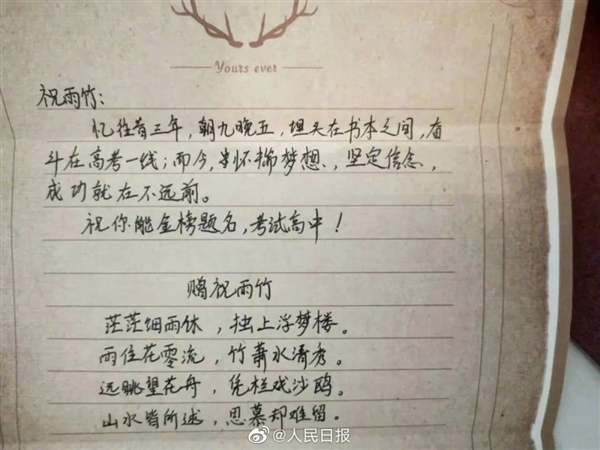 Yours ever
祝雨竹:
忆往昔三年,朝九晚五,埋头在书本之间,奋
斗在高考一线;而今,当怀揣梦想,坚定信念,
成功就在不远前。
祝你能金榜题名,考试高中!
赠祝雨竹
茫茫烟雨休,独上浮梦楼。
雨住花零流,竹萧水清秀。
远眺望花舟,凭栏戏沙鸥。
山水皆所述,思慕却难留。
@人民日报